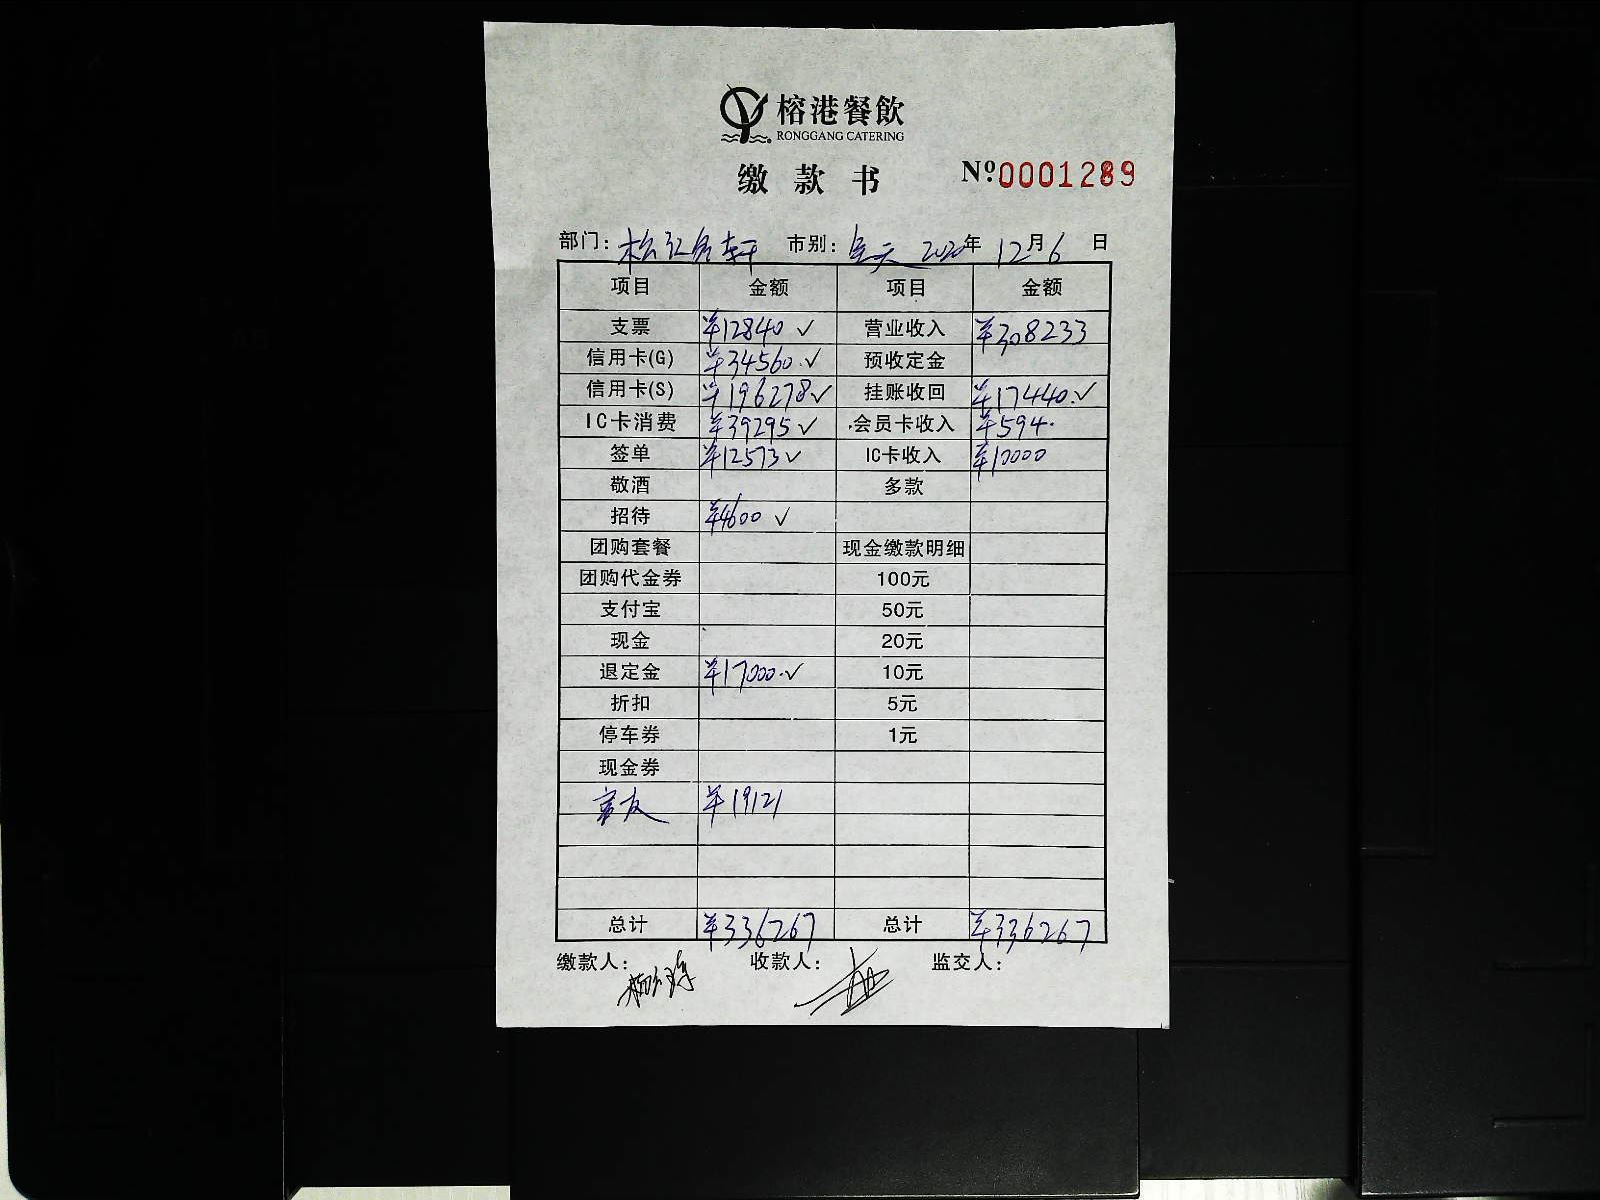 榕港餐飲
RONGGANG CATERING
缴款书 Nº0001289
部门: 松江名轩 市别: 全天 2020年 12月6日
项目 金额 项目 金额
支票 ¥12840 ✓ 营业收入 ¥308233
信用卡(G) ¥34560.✓ 预收定金
信用卡(S) ¥196278✓ 挂账收回 ¥17440.✓
IC卡消费 ¥39295✓ 会员卡收入 ¥594.
签单 ¥12573✓ IC卡收入 ¥10000
敬酒 多款
招待 ¥4600 ✓
团购套餐 现金缴款明细
团购代金券 100元
支付宝 50元
现金 20元
退定金 ¥17000.✓ 10元
折扣 5元
停车券 1元
现金券
富友 ¥19121
总计 ¥336267 总计 ¥336267
缴款人: 收款人: 监交人: